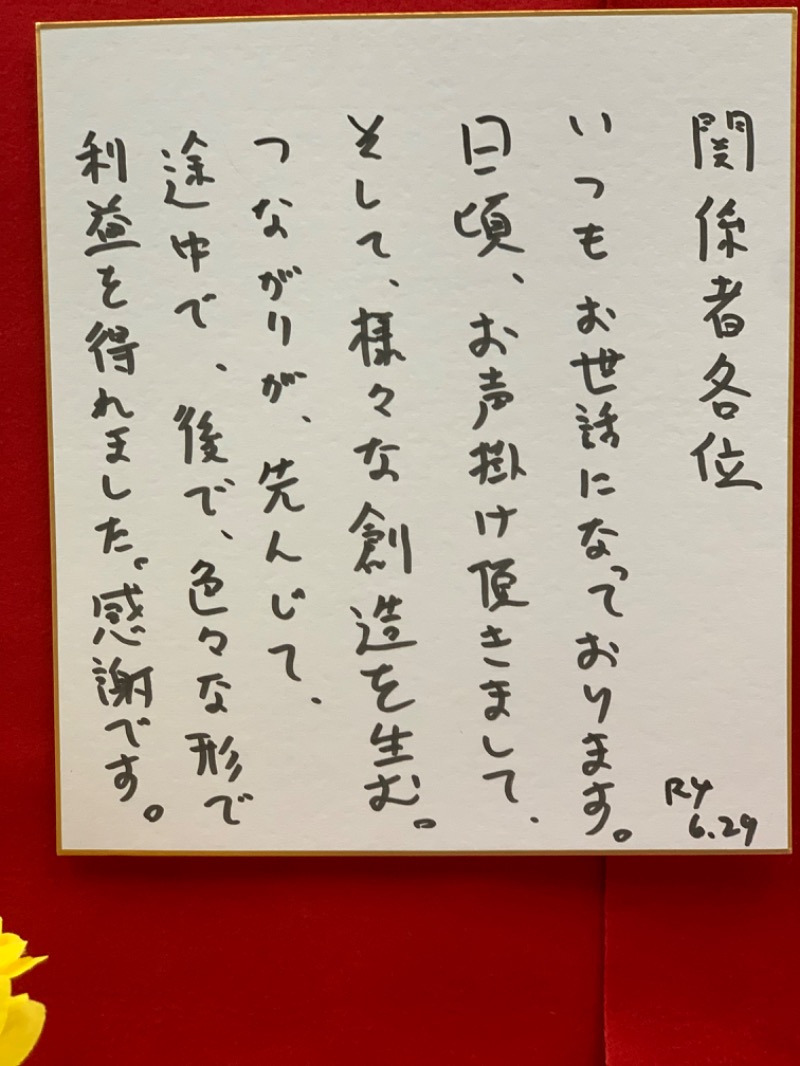 関係者各位
いつもお世話になっております。
日頃、お声掛け頂きまして、
そして、様々な創造を生む。
つながりが、先んじて、
途中で、後で、色々な形で
利益を得れました。感謝です。
RY
6.29